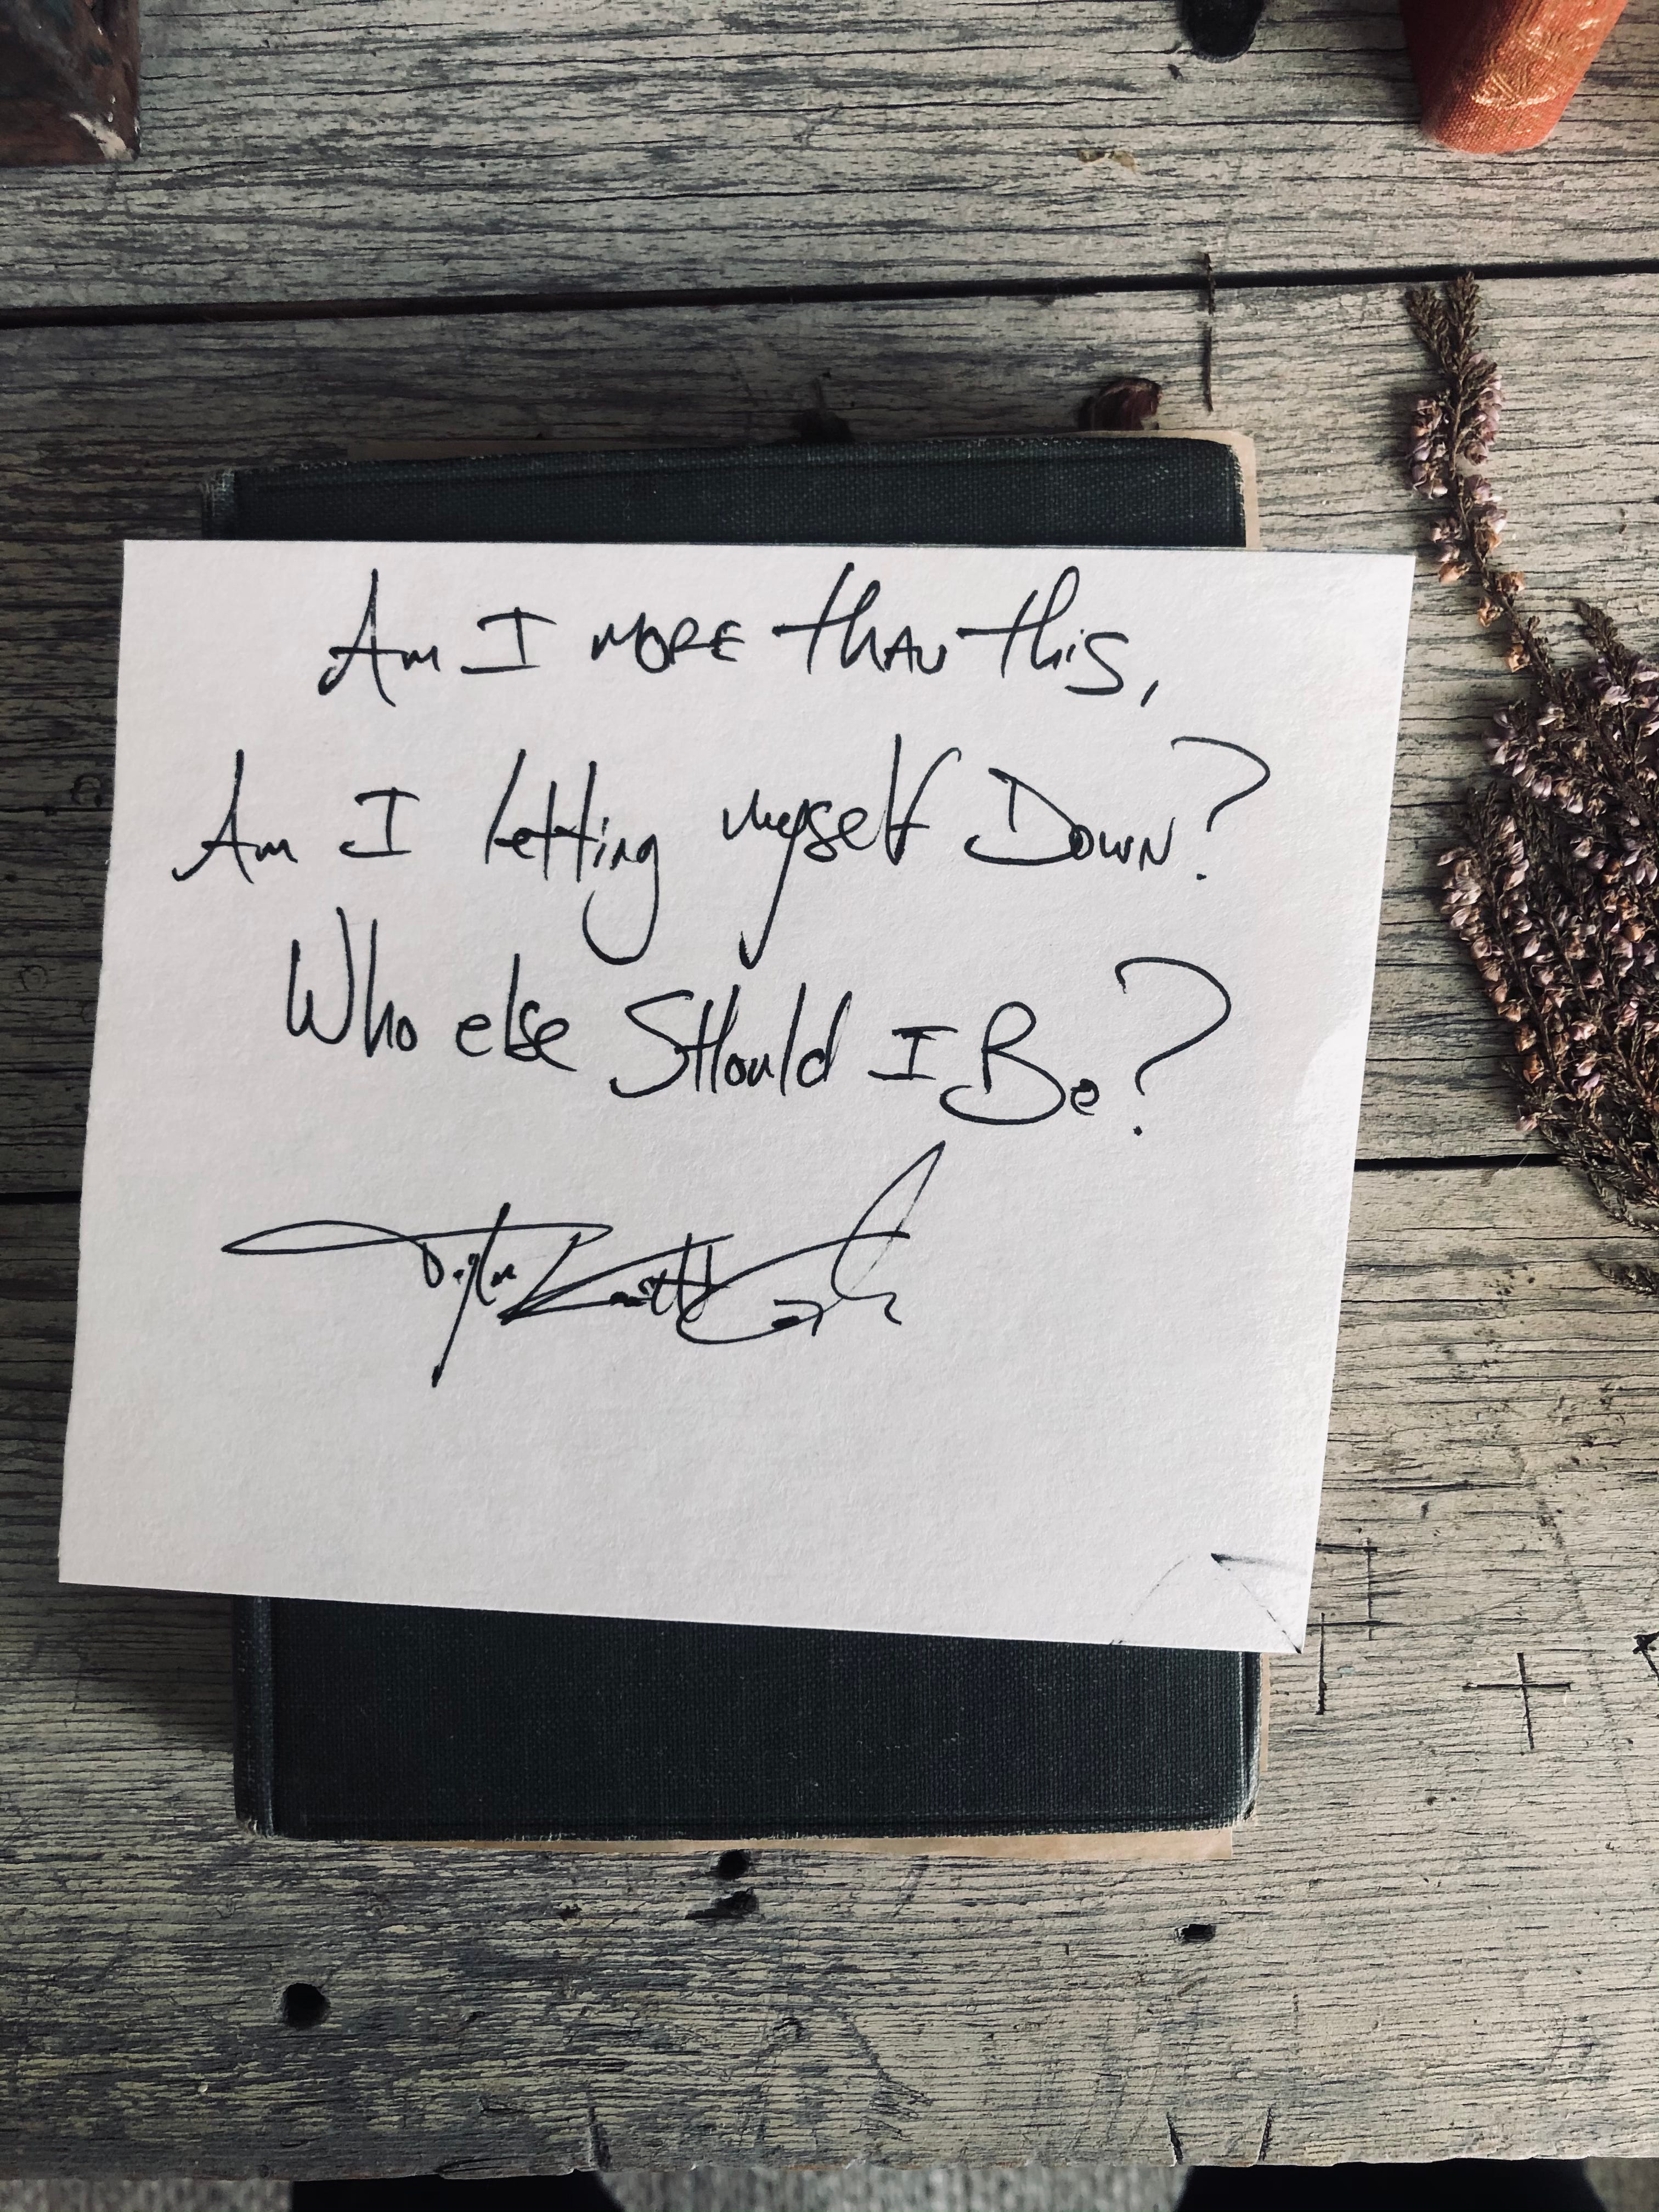 Am I MORE than this,
Am I letting myself Down?
Who else SHould I Be?